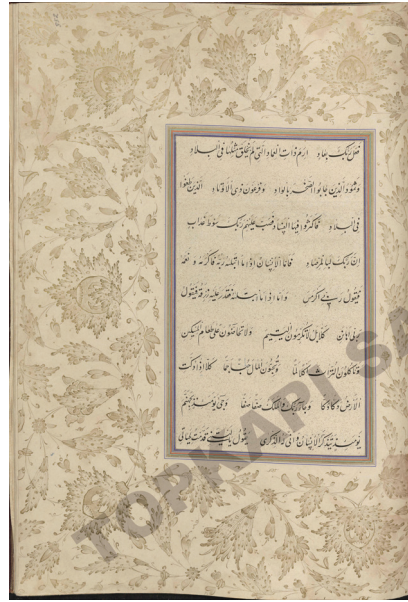 فعل ربك بعاد ارم ذات العماد التى لم يخلق مثلها فى البلاد
وثمود الذين جابوا الصخر بالواد وفرعون ذى الاوتاد الذين طغوا
فى البلاد فاكثروا فيها الفساد فصب عليهم ربك سوط عذاب
ان ربك لبالمرصاد فاما الانسان اذا ما ابتليه ربه فاكرمه و نعمه
فيقول ربى اكرمن واما اذا ما ابتليه فقدر عليه رزقه فيقول
ربى اهانن كلا بل لا تكرمون اليتيم ولا تحاضون على طعام المسكين
وتاكلون التراث اكلا لما وتحبون المال حبا جما كلا اذا دكت
الارض دكا دكا وجاء ربك والملك صفا صفا وجىء يومئذ بجهنم
يومئذ يتذكر الانسان وانى له الذكرى يقول يا ليتنى قدمت لحياتى
TOPKAPI SA